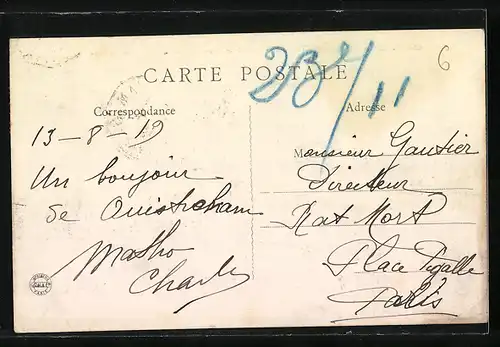 CARTE POSTALE
6
23/11
Correspondance
Adresse
13-8-19
Un bonjour
de Ouistreham
Matho
Charles
Monsieur Gautier
Directeur
Rat Mort
Place Pigalle
Paris